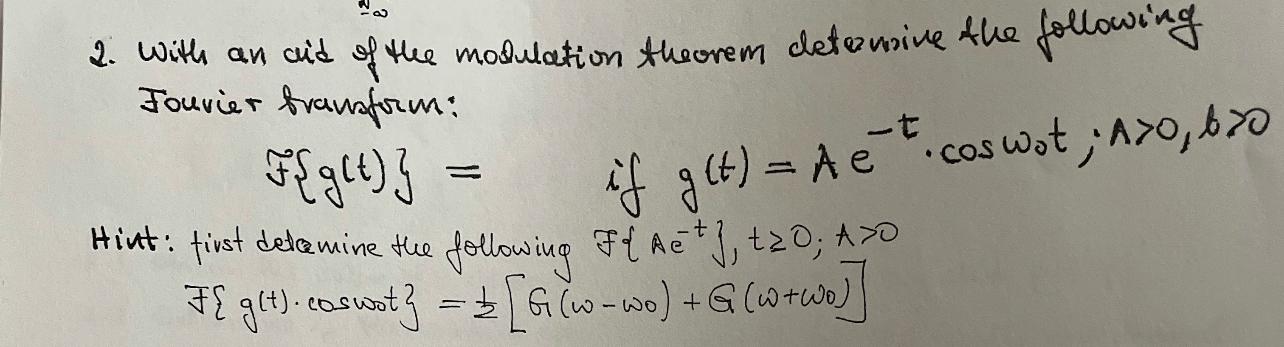 -∞
2. With an aid of the modulation theorem determine the following
Fourier transform:
F{g(t)} = if g(t) = A e^-t . cos ω₀t ; A>0, b>0
Hint: first determine the following F{Ae^-t}, t≥0; A>0
F{g(t)·cosω₀t} = ½ [G(ω-ω₀) + G(ω+ω₀)]